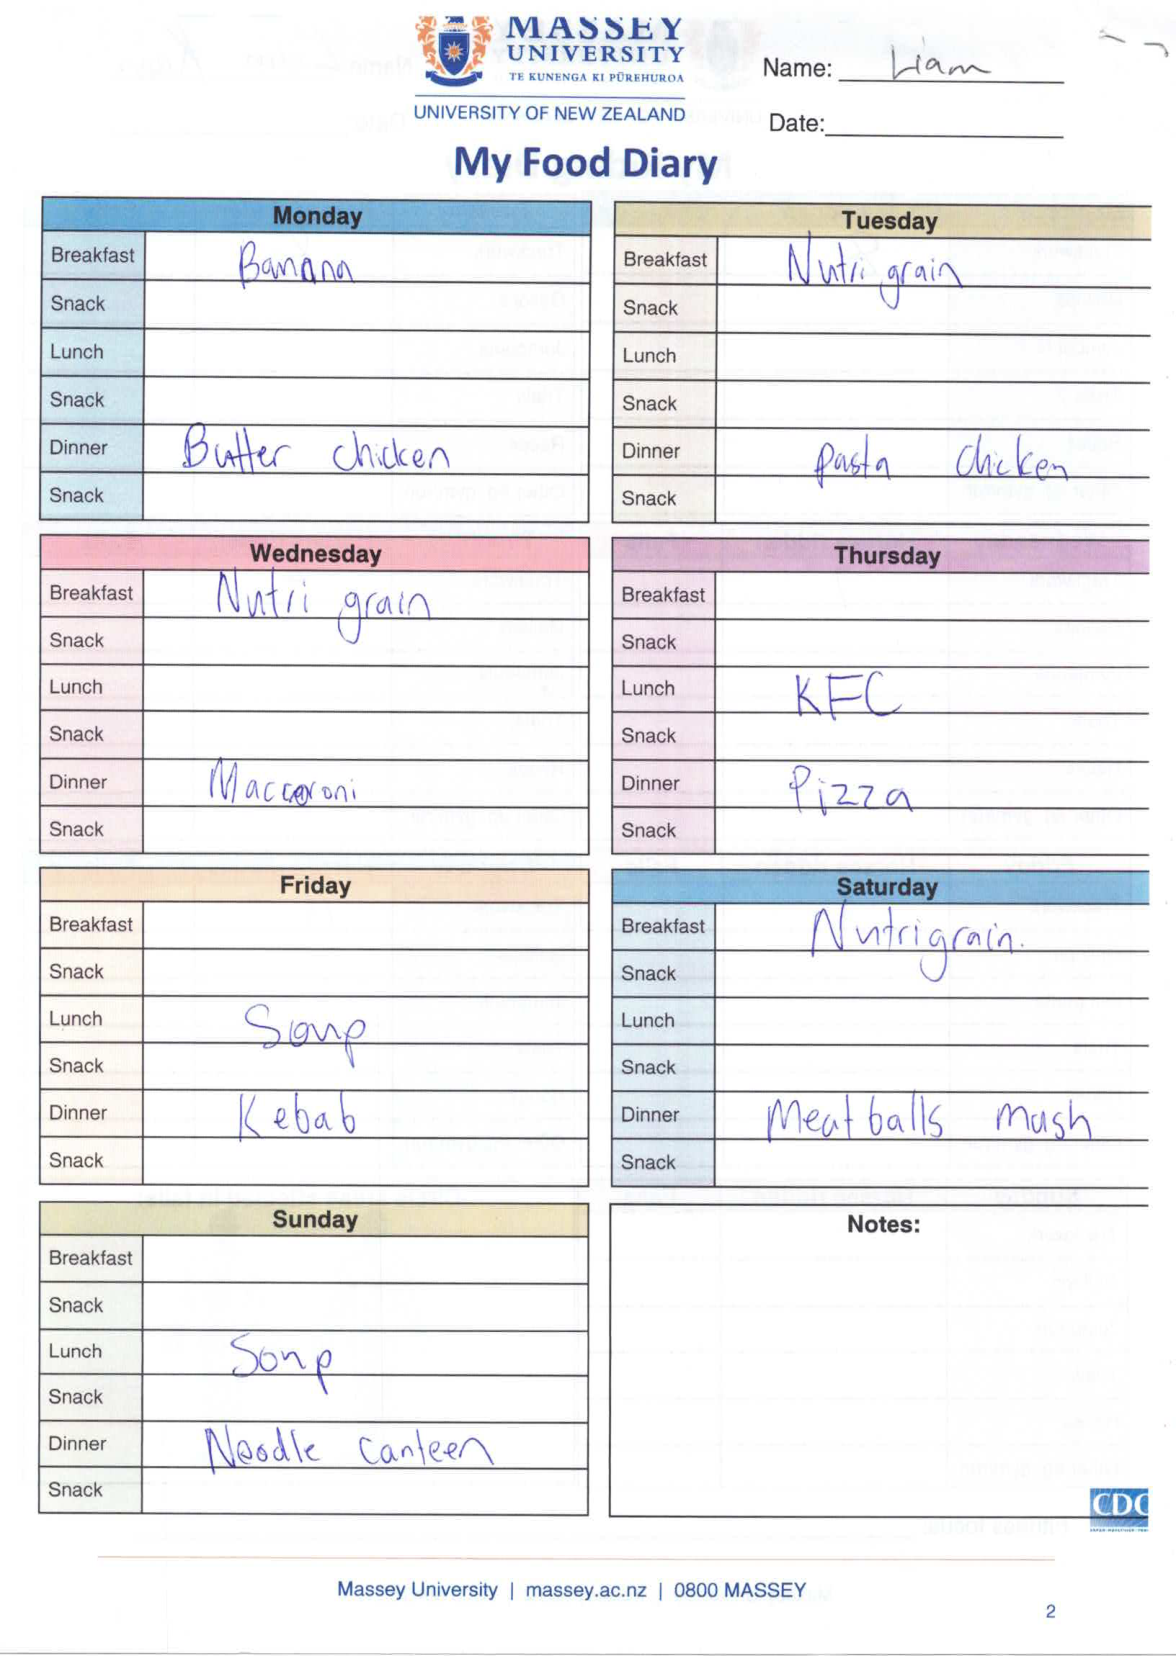 MASSEY
UNIVERSITY
TE KUNENGA KI PŪREHUROA
UNIVERSITY OF NEW ZEALAND
Name: Liam
Date:
My Food Diary
Monday
Breakfast Banana
Snack
Lunch
Snack
Dinner Butter chicken
Snack
Tuesday
Breakfast Nutri grain
Snack
Lunch
Snack
Dinner pasta chicken
Snack
Wednesday
Breakfast Nutri grain
Snack
Lunch
Snack
Dinner Maccaroni
Snack
Thursday
Breakfast
Snack
Lunch KFC
Snack
Dinner Pizza
Snack
Friday
Breakfast
Snack
Lunch Soup
Snack
Dinner Kebab
Snack
Saturday
Breakfast Nutrigrain.
Snack
Lunch
Snack
Dinner Meatballs mash
Snack
Sunday
Breakfast
Snack
Lunch Soup
Snack
Dinner Noodle canteen
Snack
Notes:
CDC
Massey University | massey.ac.nz | 0800 MASSEY
2